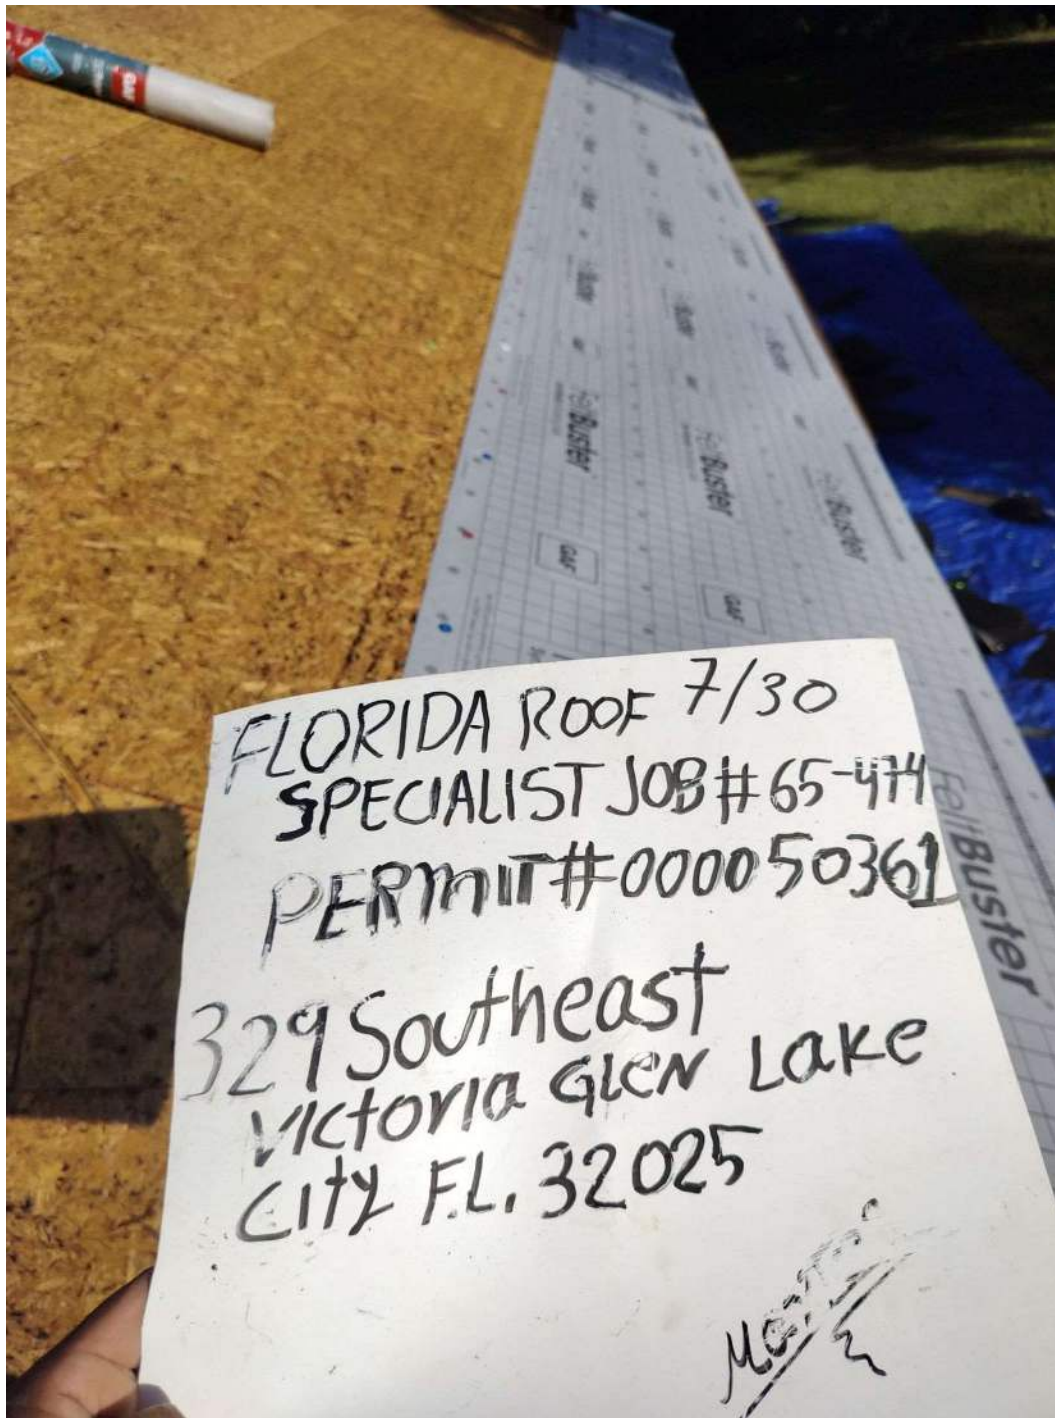 GAF
FeltBuster
FeltBuster
FeltBuster
GAF
GAF
FeltBuster
FLORIDA ROOF 7/30
SPECIALIST JOB # 65-474
PERMIT # 0000 50361
329 Southeast
Victoria GLEN Lake
City F.L. 32025